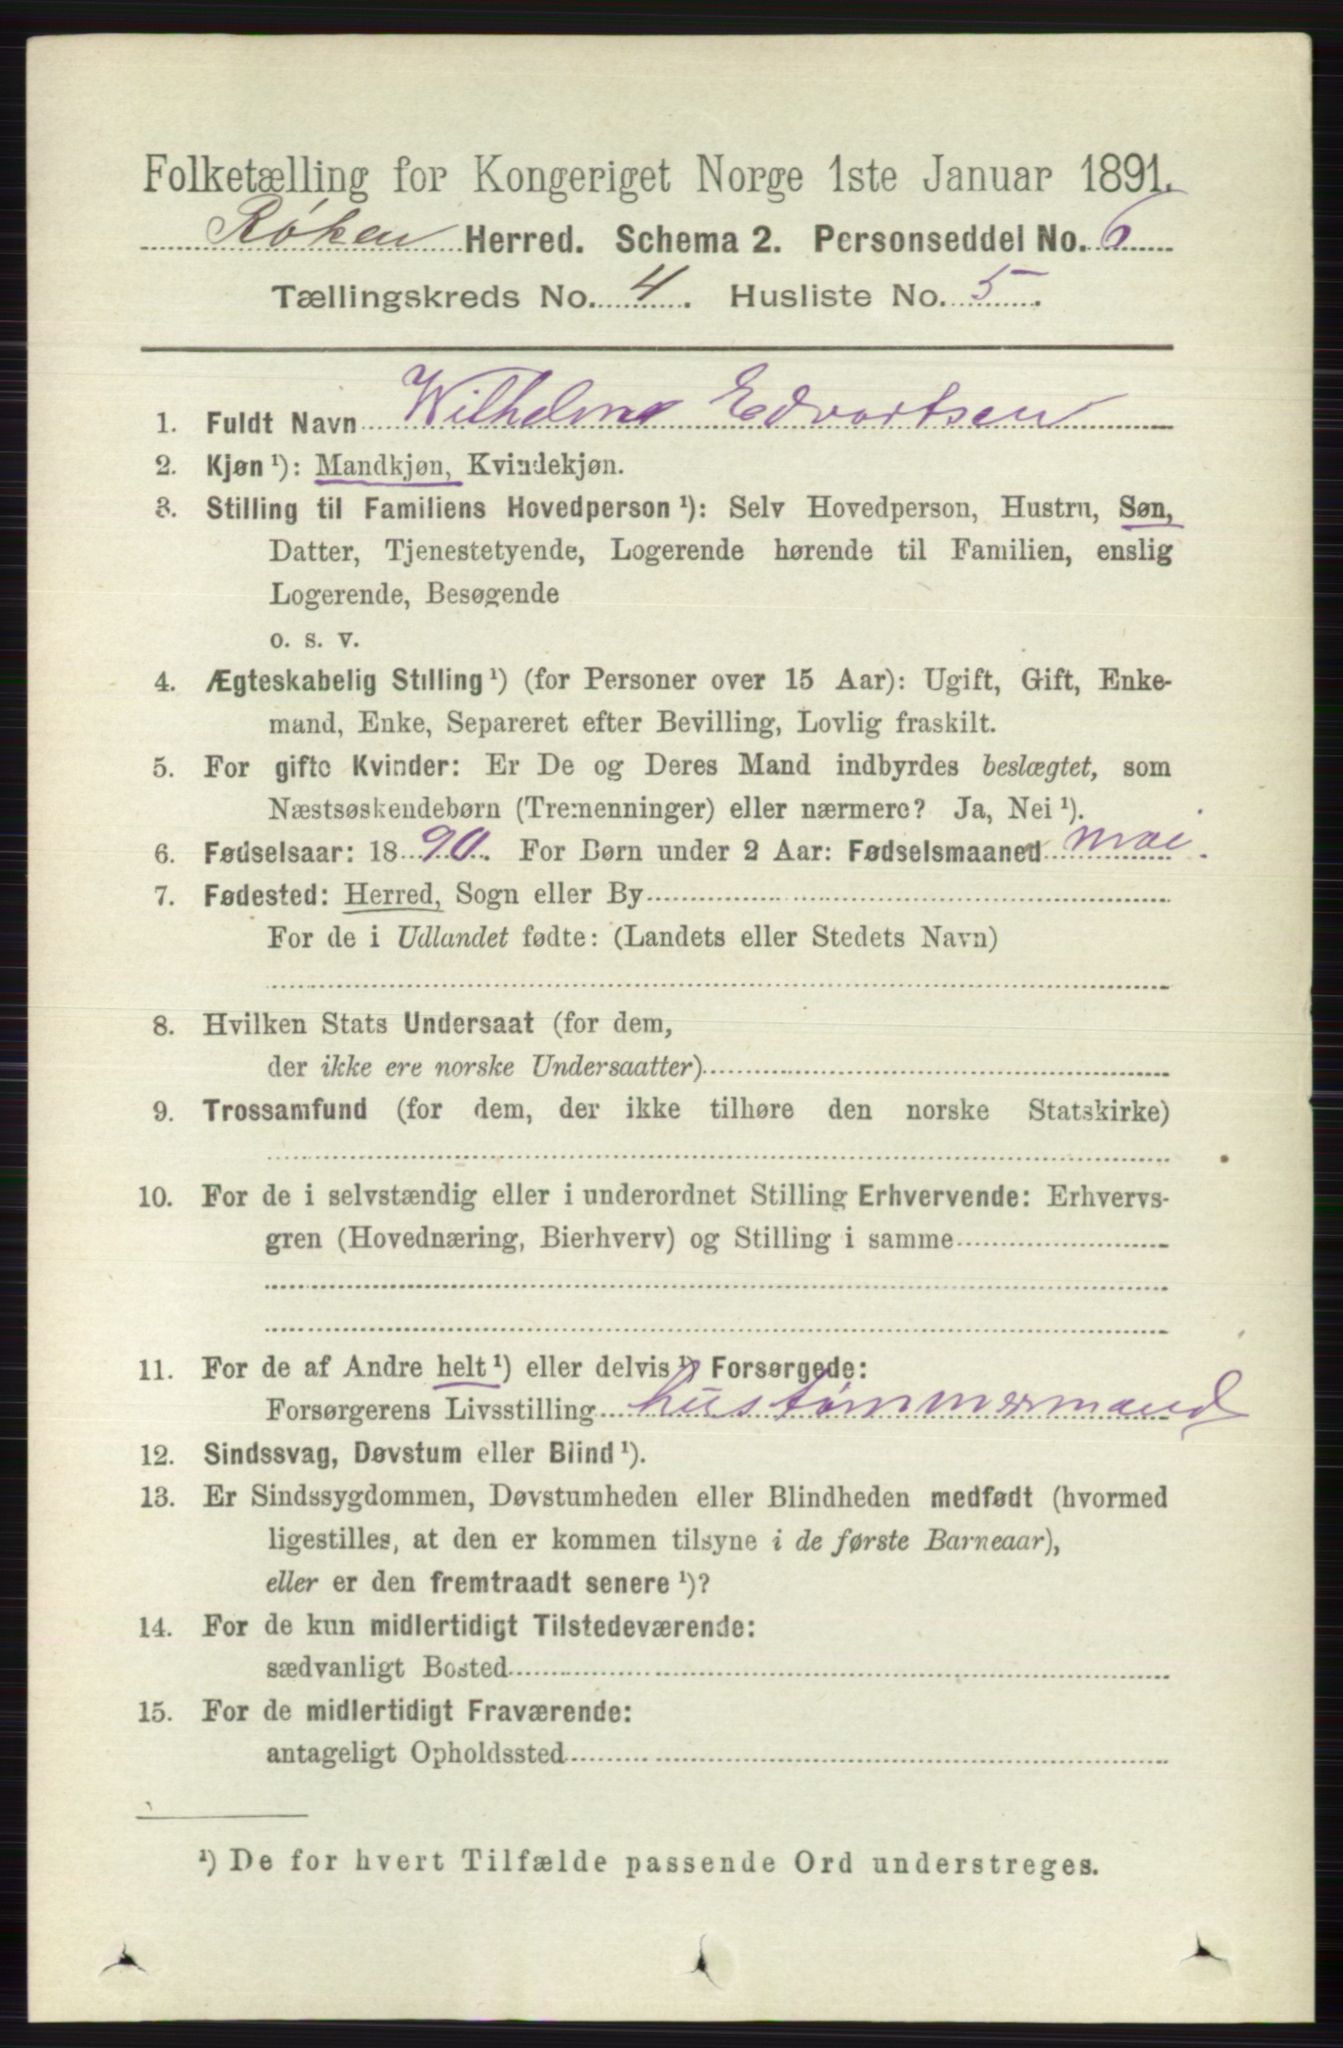 Folketælling for Kongeriget Norge 1ste Januar 1891.
Røken Herred. Schema 2. Personseddel No. 6
Tællingskreds No. 4. Husliste No. 5.
1. Fuldt Navn Wilhelm Edvartsen
2. Kjøn ¹): Mandkjøn, Kvindekjøn.
3. Stilling til Familiens Hovedperson ¹): Selv Hovedperson, Hustru, Søn,
Datter, Tjenestetyende, Logerende hørende til Familien, enslig
Logerende, Besøgende
o. s. v.
4. Ægteskabelig Stilling ¹) (for Personer over 15 Aar): Ugift, Gift, Enke-
mand, Enke, Separeret efter Bevilling, Lovlig fraskilt.
5. For gifte Kvinder: Er De og Deres Mand indbyrdes beslægtet, som
Næstsøskendebørn (Tremenninger) eller nærmere? Ja, Nei ¹).
6. Fødselsaar: 1890. For Børn under 2 Aar: Fødselsmaaned mai.
7. Fødested: Herred, Sogn eller By
For de i Udlandet fødte: (Landets eller Stedets Navn)
8. Hvilken Stats Undersaat (for dem,
der ikke ere norske Undersaatter)
9. Trossamfund (for dem, der ikke tilhøre den norske Statskirke)
10. For de i selvstændig eller i underordnet Stilling Erhvervende: Erhvervs-
gren (Hovednæring, Bierhverv) og Stilling i samme
11. For de af Andre helt ¹) eller delvis ¹) Forsørgede:
Forsørgerens Livsstilling hustømmermand
12. Sindssvag, Døvstum eller Blind ¹).
13. Er Sindssygdommen, Døvstumheden eller Blindheden medfødt (hvormed
ligestilles, at den er kommen tilsyne i de første Barneaar),
eller er den fremtraadt senere ¹)?
14. For de kun midlertidigt Tilstedeværende:
sædvanligt Bosted
15. For de midlertidigt Fraværende:
antageligt Opholdssted
¹) De for hvert Tilfælde passende Ord understreges.